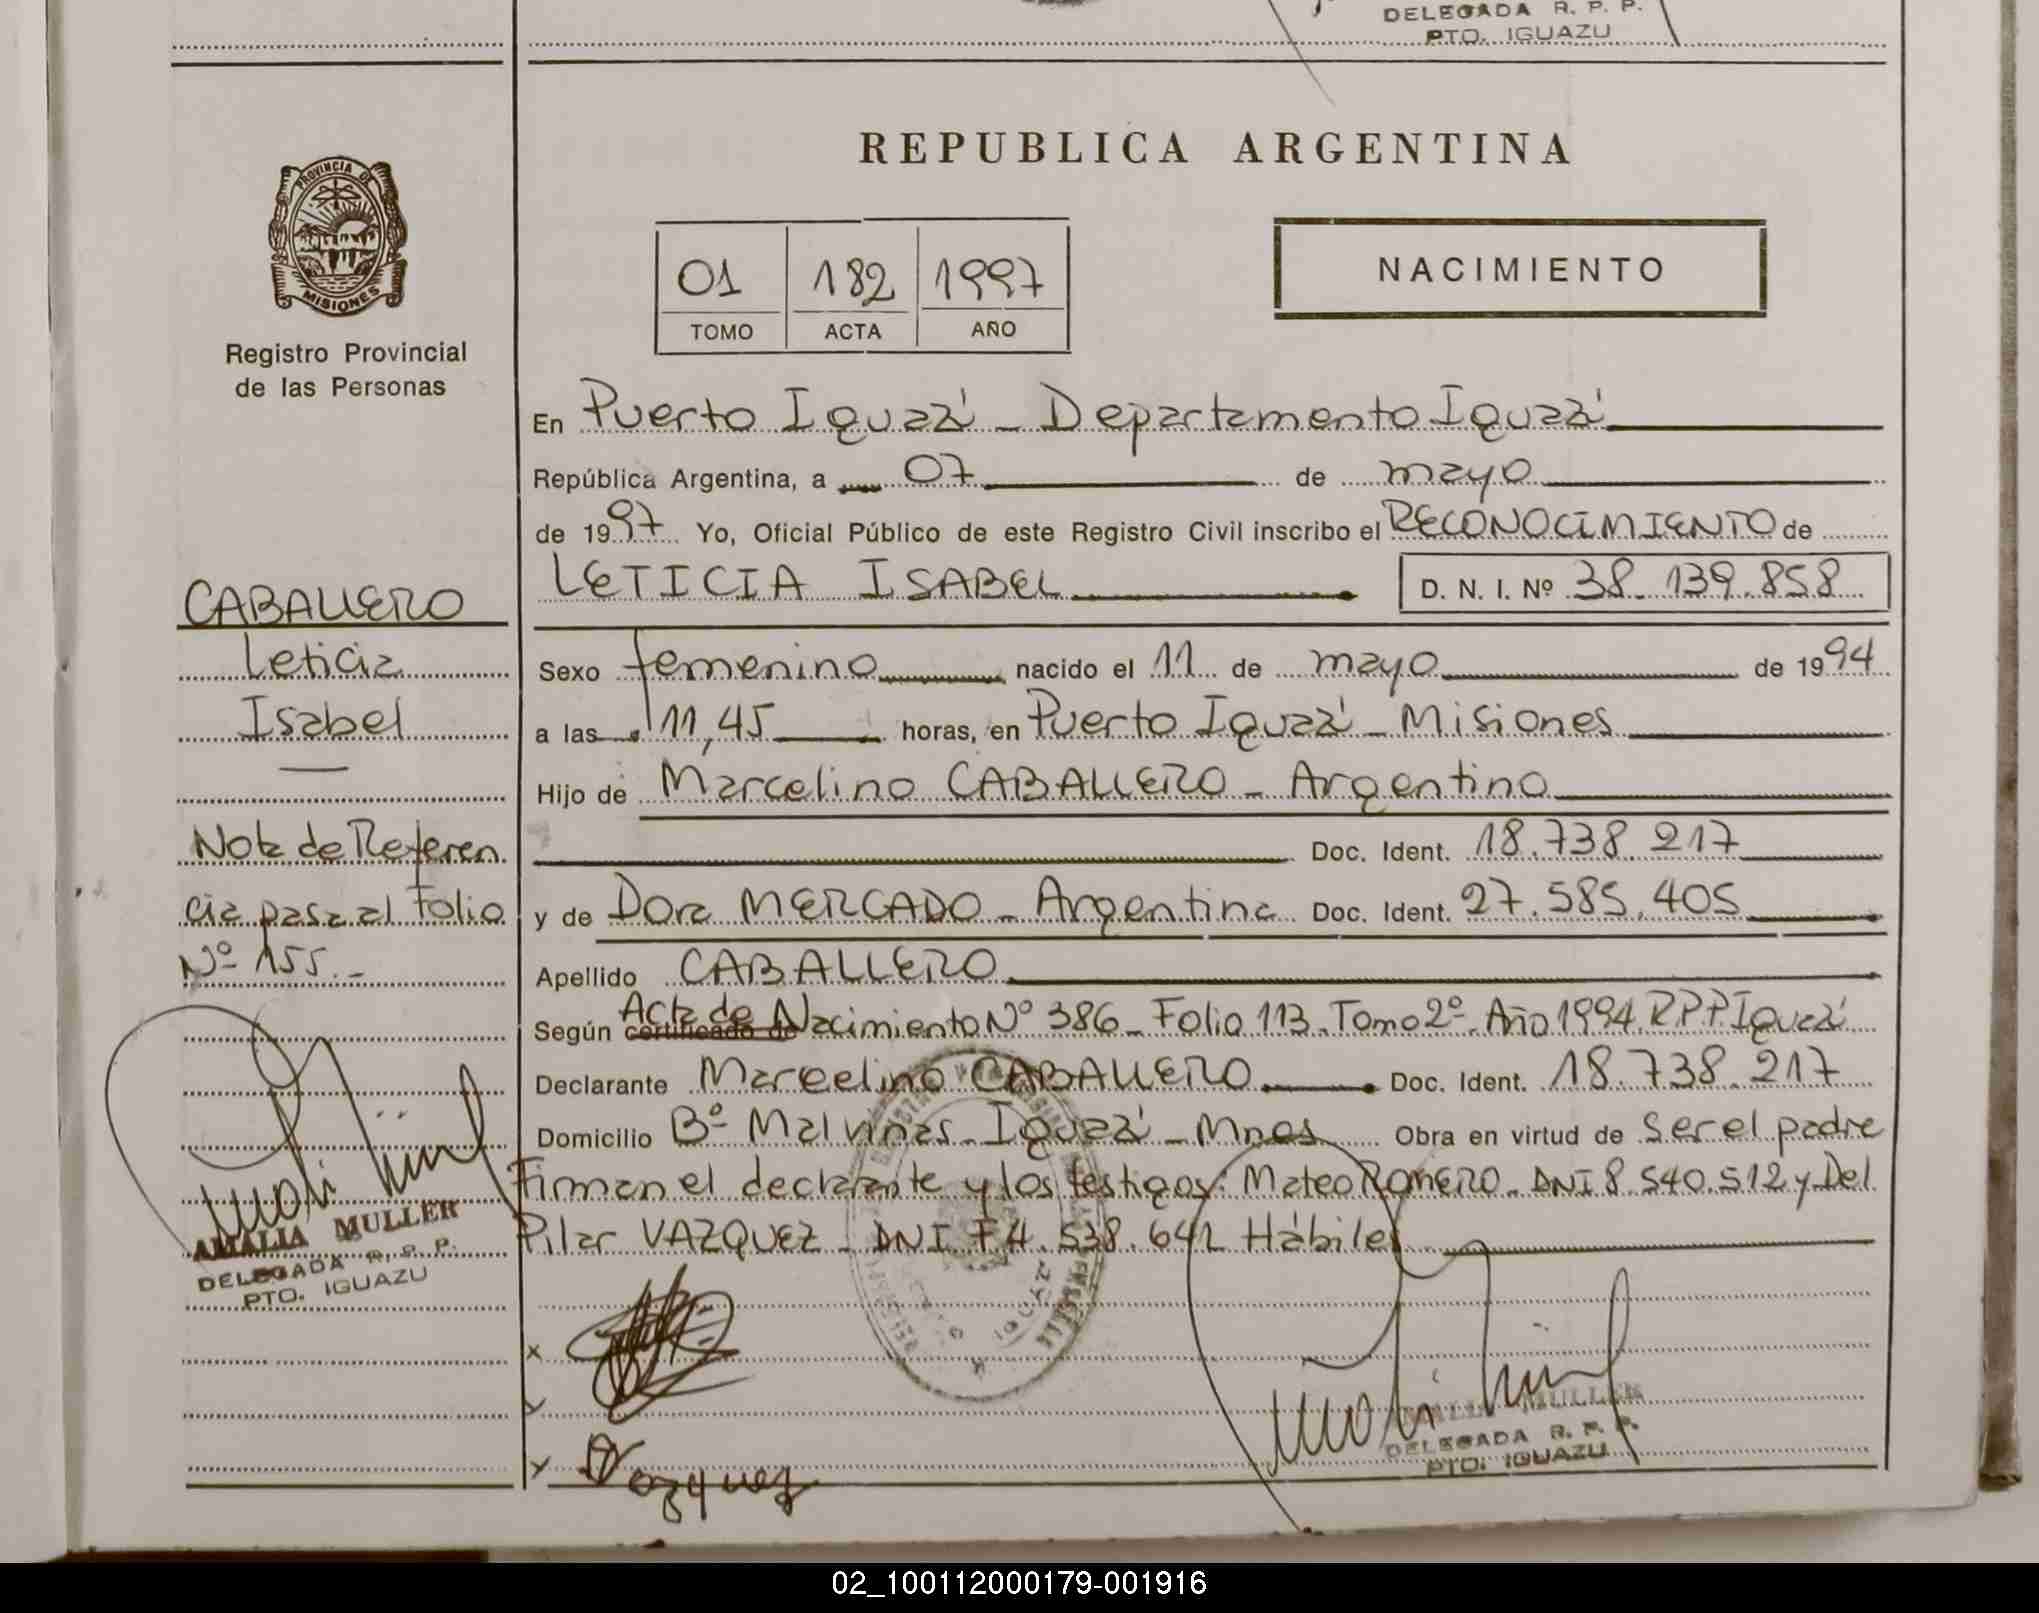 DELEGADA R. P. P.
PTO. IGUAZU
PROVINCIA DE
MISIONES
Registro Provincial
de las Personas
REPUBLICA ARGENTINA
01 182 1997
TOMO ACTA AÑO
NACIMIENTO
En Puerto Iguazú - Departamento Iguazú
República Argentina, a 07 de mayo
de 1997 Yo, Oficial Público de este Registro Civil inscribo el RECONOCIMIENTO de
LETICIA ISABEL D. N. I. Nº 38.139.858
Sexo femenino nacido el 11 de mayo de 1994
a las 11,45 horas, en Puerto Iguazú - Misiones
Hijo de Marcelino CABALLERO - Argentino
Doc. Ident. 18.738.217
y de Dora MERCADO - Argentina Doc. Ident. 27.585.405
Apellido CABALLERO
Según certificado de Acta de Nacimiento Nº 386 - Folio 113. Tomo 2º. Año 1994. R.P.P. Iguazú
Declarante Marcelino CABALLERO Doc. Ident. 18.738.217
Domicilio Bº Malvinas - Iguazú - Mnes Obra en virtud de ser el padre
Firman el declarante y los testigos: Mateo ROMERO - DNI 8.540.512 y Del
Pilar VAZQUEZ - DNI F4.538.642 Hábiles
CABALLERO
Leticia
Isabel
Nota de Referen
cia pasa al Folio
Nº 155.-
AMALIA MULLER
DELEGADA R. P. P.
PTO. IGUAZU
x
y
y Vazquez
AMALIA MULLER
DELEGADA R. P. P.
PTO. IGUAZU
02_100112000179-001916